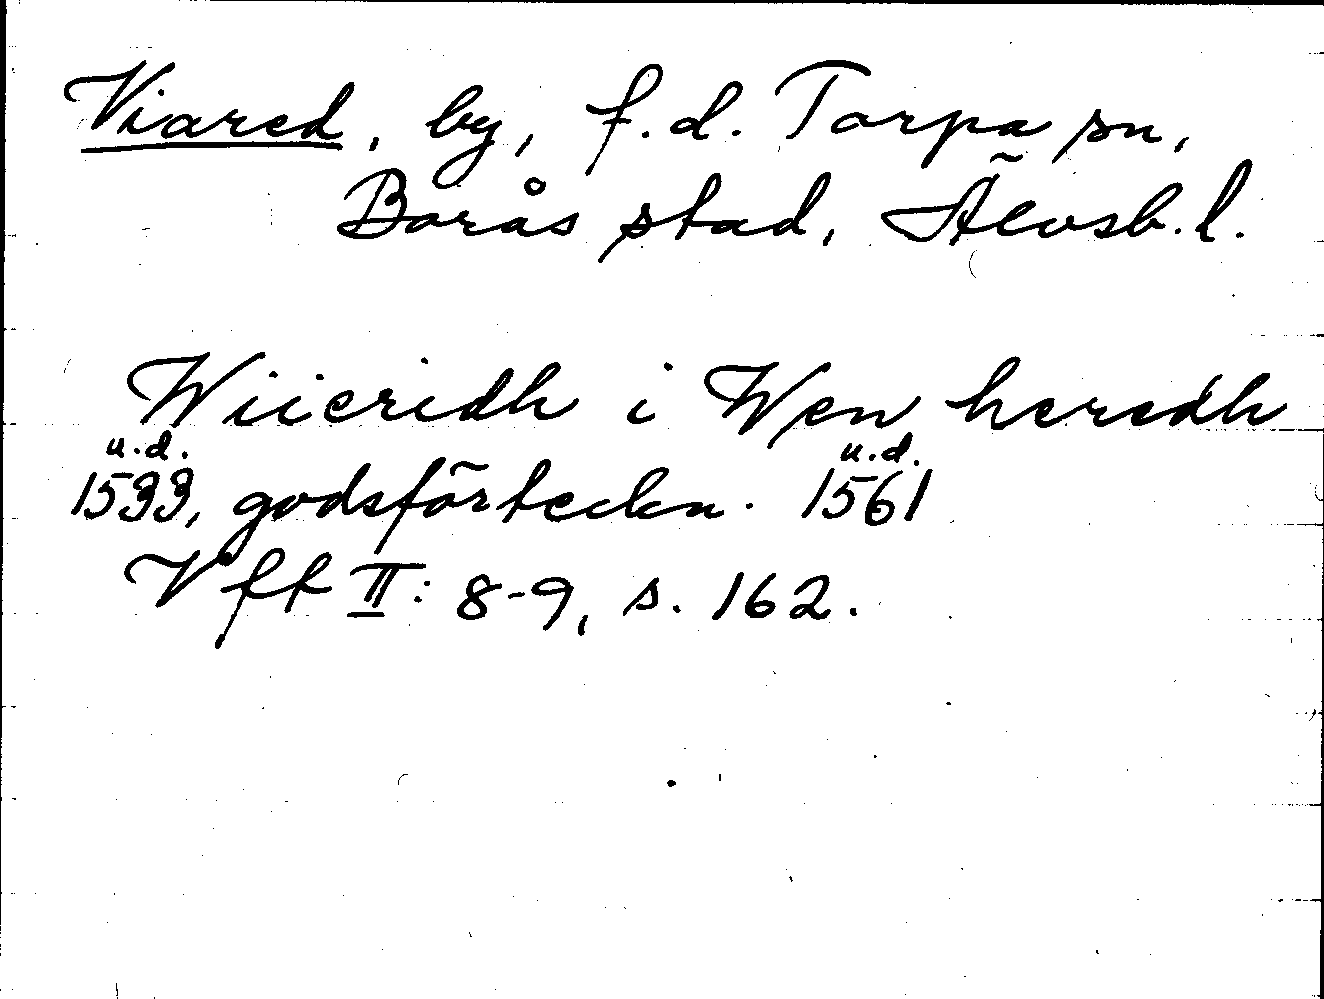 Viared, by, f.d. Torpa sn,
Borås stad, Älvsb. l.
Wiieridh i Wen heredh
u.d. u.d.
1533, godsförteckn. 1561
Vfft II: 8-9, s. 162.